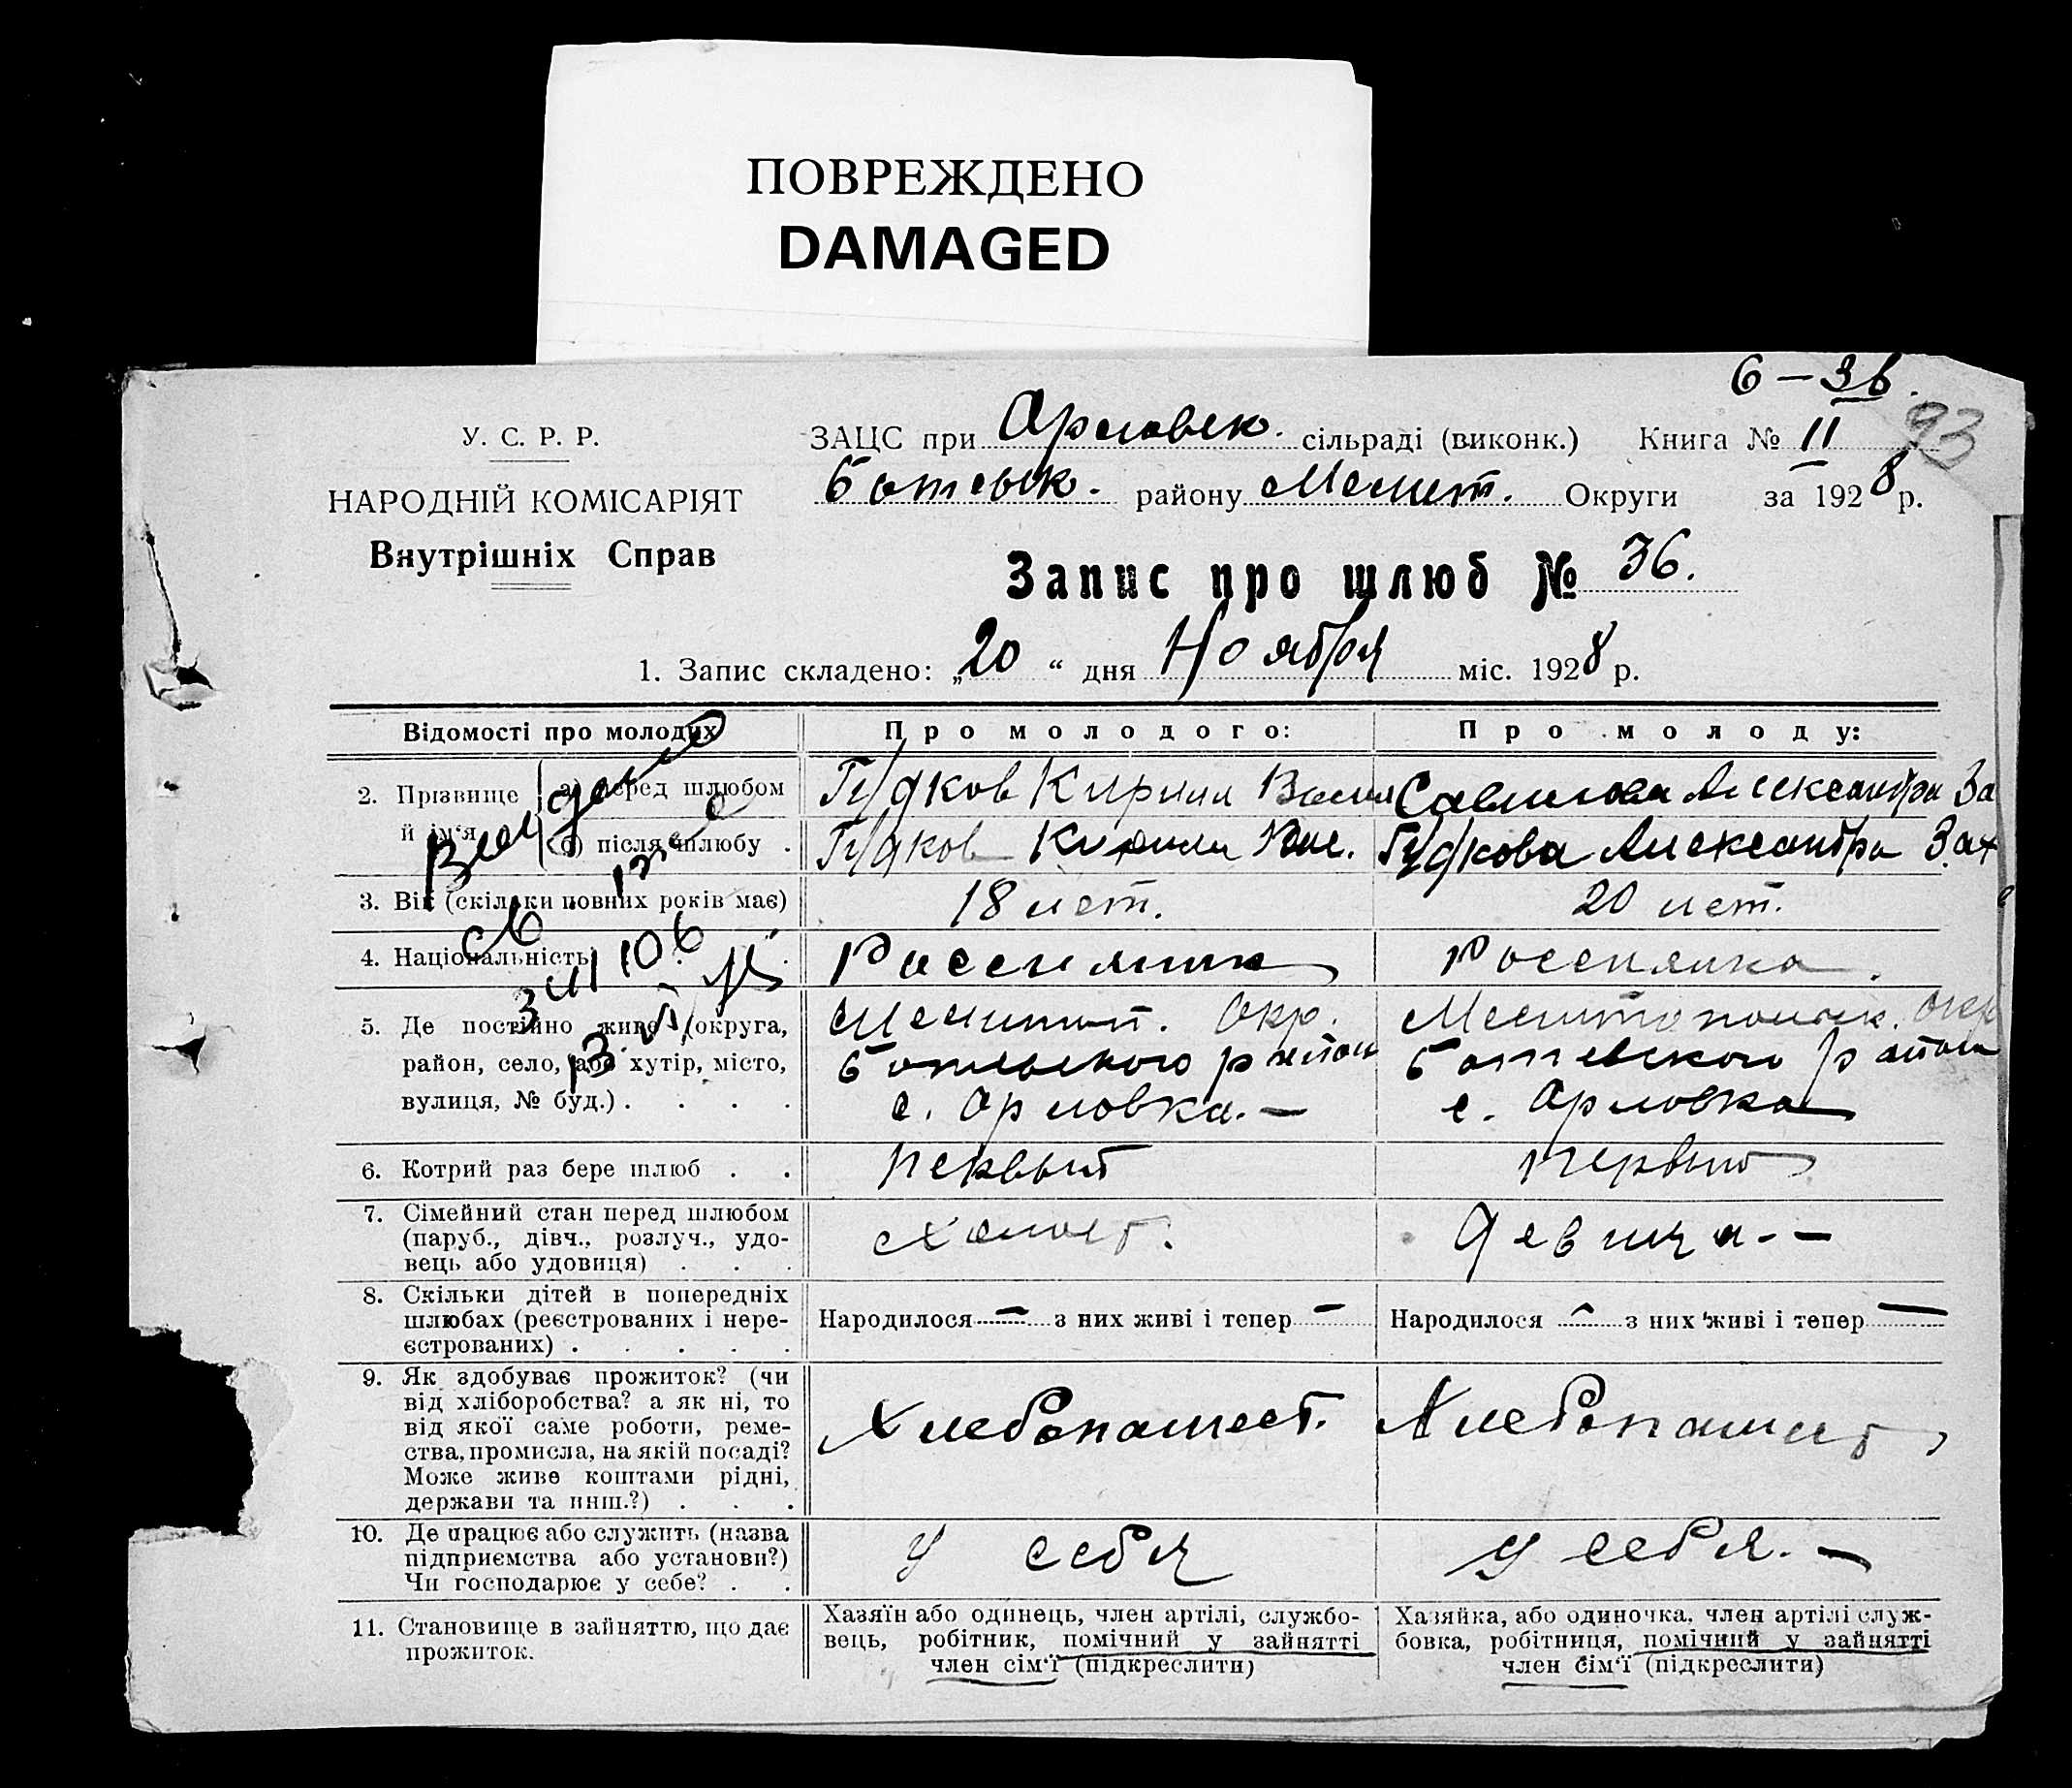 ПОВРЕЖДЕНО
DAMAGED
6 – 3в.
93
У. С. Р. Р.
НАРОДНІЙ КОМІСАРІЯТ
Внутрішніх Справ
ЗАЦС при Орловск. сільраді (виконк.) Книга № II
Ботьевск. району Мелит. Округи за 1928 р.
Запис про шлюб № 36.
1. Запис складено: „20“ дня Ноября міс. 1928 р.
Відомості про молодих
Про молодого:
Про молоду:
2. Прізвище й ім‘я
а) перед шлюбом
Гудков Кирилл Васил
Савилова Александра За
б) після шлюбу .
Гудков Кирилл Вас.
Гудкова Александра Зах
3. Вік (скільки повних років має)
18 лет.
20 лет.
4. Національність
Россиянин
Россиянка.
5. Де постійно живе (округа,
район, село, або хутір, місто,
вулиця, № буд.) . . . .
Мелитоп. Окр.
Ботьевского район
с. Орловка. –
Мелитопольск. окр
Ботьевского район
с. Орловка
6. Котрий раз бере шлюб . .
первый
первый
7. Сімейний стан перед шлюбом
(паруб., дівч., розлуч., удо-
вець або удовиця) . . .
Холост.
Девица. –
8. Скільки дітей в попередніх
шлюбах (реєстрованих і нере-
єстрованих) . . . . .
Народилося – з них живі і тепер –
Народилося – з них живі і тепер –
9. Як здобуває прожиток? (чи
від хліборобства? а як ні, то
від якої саме роботи, реме-
ства, промисла, на якій посаді?
Може живе коштами рідні,
держави та инш.?) . . .
Хлебопашест.
Хлебопашест
10. Де працює або служить (назва
підприємства або установи?)
Чи господарює у себе? . .
У себя
У себя. –
11. Становище в зайняттю, що дає
прожиток.
Хазяїн або одинець, член артілі, службо-
вець, робітник, помічний у зайнятті
член сім‘ї (підкреслити)
Хазяйка, або одиночка, член артілі служ-
бовка, робітниця, помічний у зайнятті
член сім‘ї (підкреслити)